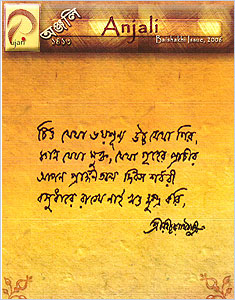 Pujari
অঞ্জলি
১৪১৩
Anjali
Baishakhi Issue, 2006
চিত্ত যেথা ভয়শূন্য উচ্চ যেথা শির,
জ্ঞান যেথা মুক্ত, যেথা গৃহের প্রাচীর
আপন প্রাঙ্গণতলে দিবস শর্বরী
বসুধারে রাখে নাই খণ্ড ক্ষুদ্র করি,
শ্রীরবীন্দ্রনাথ ঠাকুর